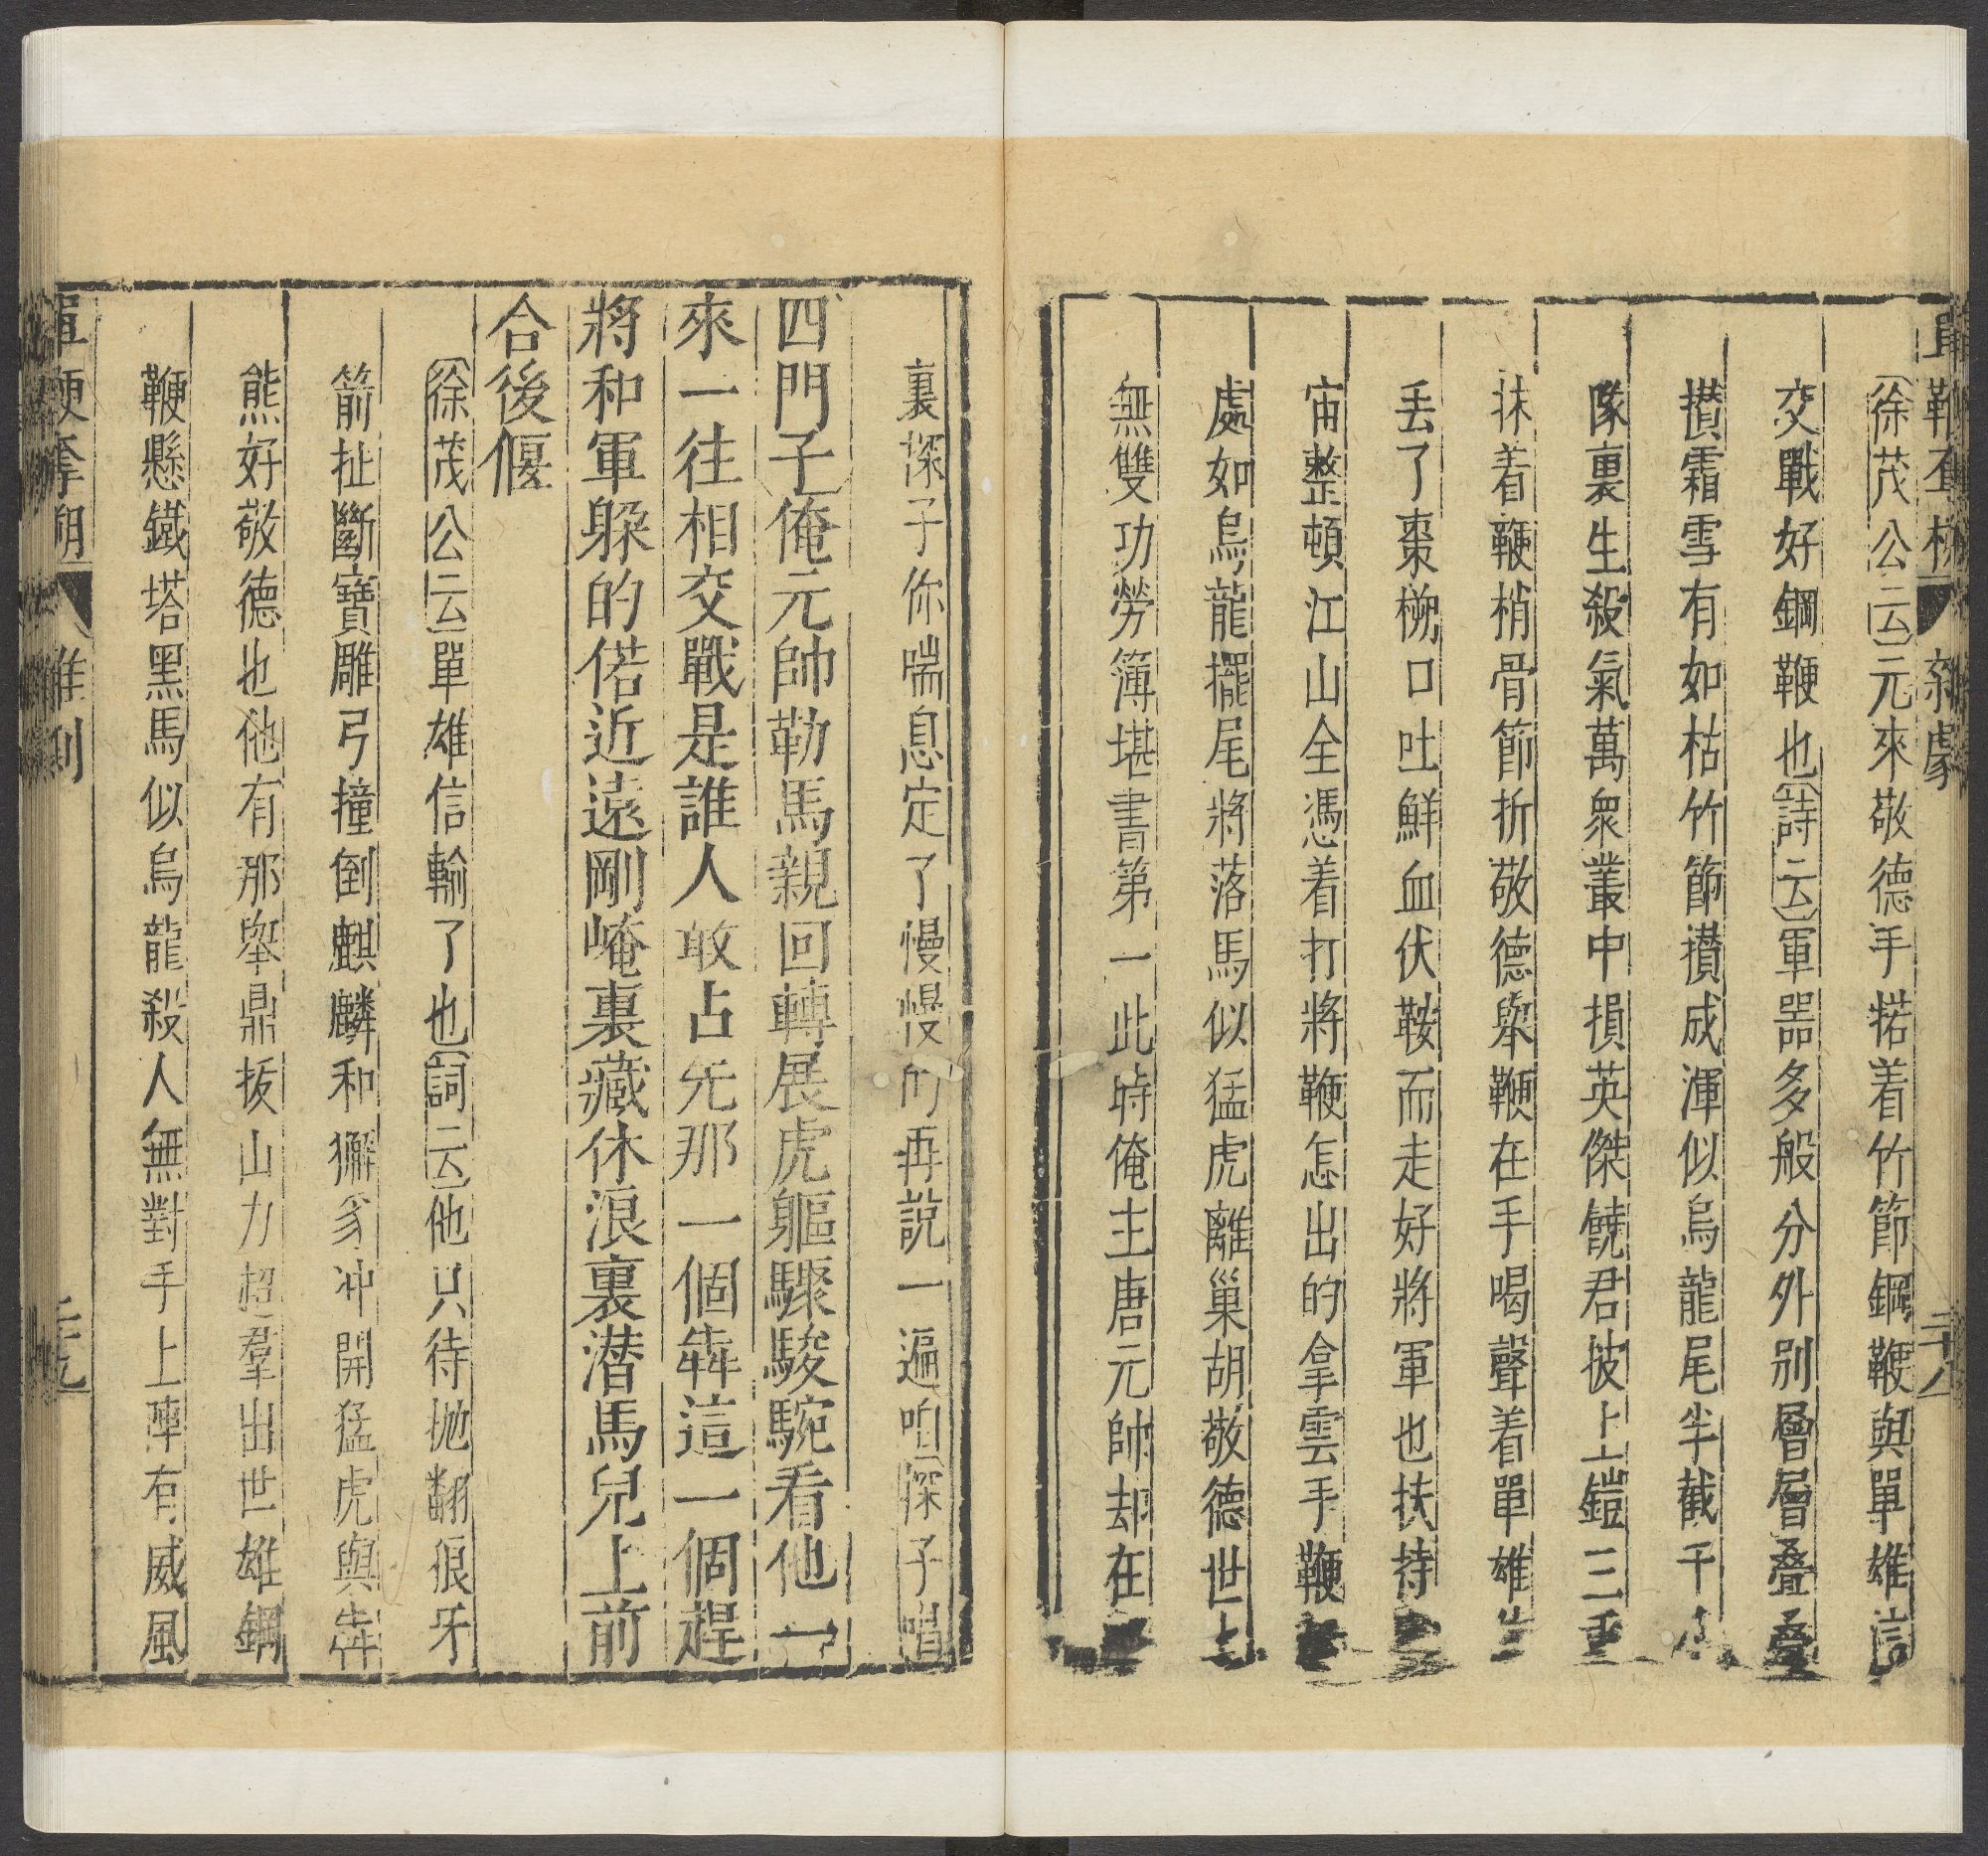 單鞭奪槊 雜劇 二十八
徐茂公云元來敬德手掿着竹節鋼鞭與單雄信
交戰好鋼鞭也詩云軍器多般分外别層層叠叠
攢霜雪有如枯竹節攢成渾似烏龍尾半截千
隊裏生殺氣萬衆叢中損英傑饒君披上鎧三重
抹着鞭梢骨節折敬德舉鞭在手喝聲着單雄
丢了棗槊口吐鮮血伏鞍而走好將軍也扶持
宙整頓江山全憑着打將鞭怎出的拿雲手鞭
處如烏龍擺尾將落馬似猛虎離巢胡敬德世上
無雙功勞簿堪書第一此時俺主唐元帥却在
裏探子你喘息定了慢慢的再說一遍咱探子唱
四門子俺元帥勒馬親回轉展虎軀驟駿駞看他一
來一往相交戰是誰人敢占先那一個犇這一個趕
將和軍躲的偌近遠剛崦裏藏休浪裏潛馬兒上前
合後偃
徐茂公云單雄信輸了也詞云他只待抛翻狼牙
箭扯斷寶雕弓撞倒麒麟和獬豸冲開猛虎與犇
熊好敬德也他有那舉鼎拔山力超羣出世雄鋼
鞭懸鐵塔黑馬似烏龍殺人無對手上陣有威風
單鞭奪槊 雜劇 二十九